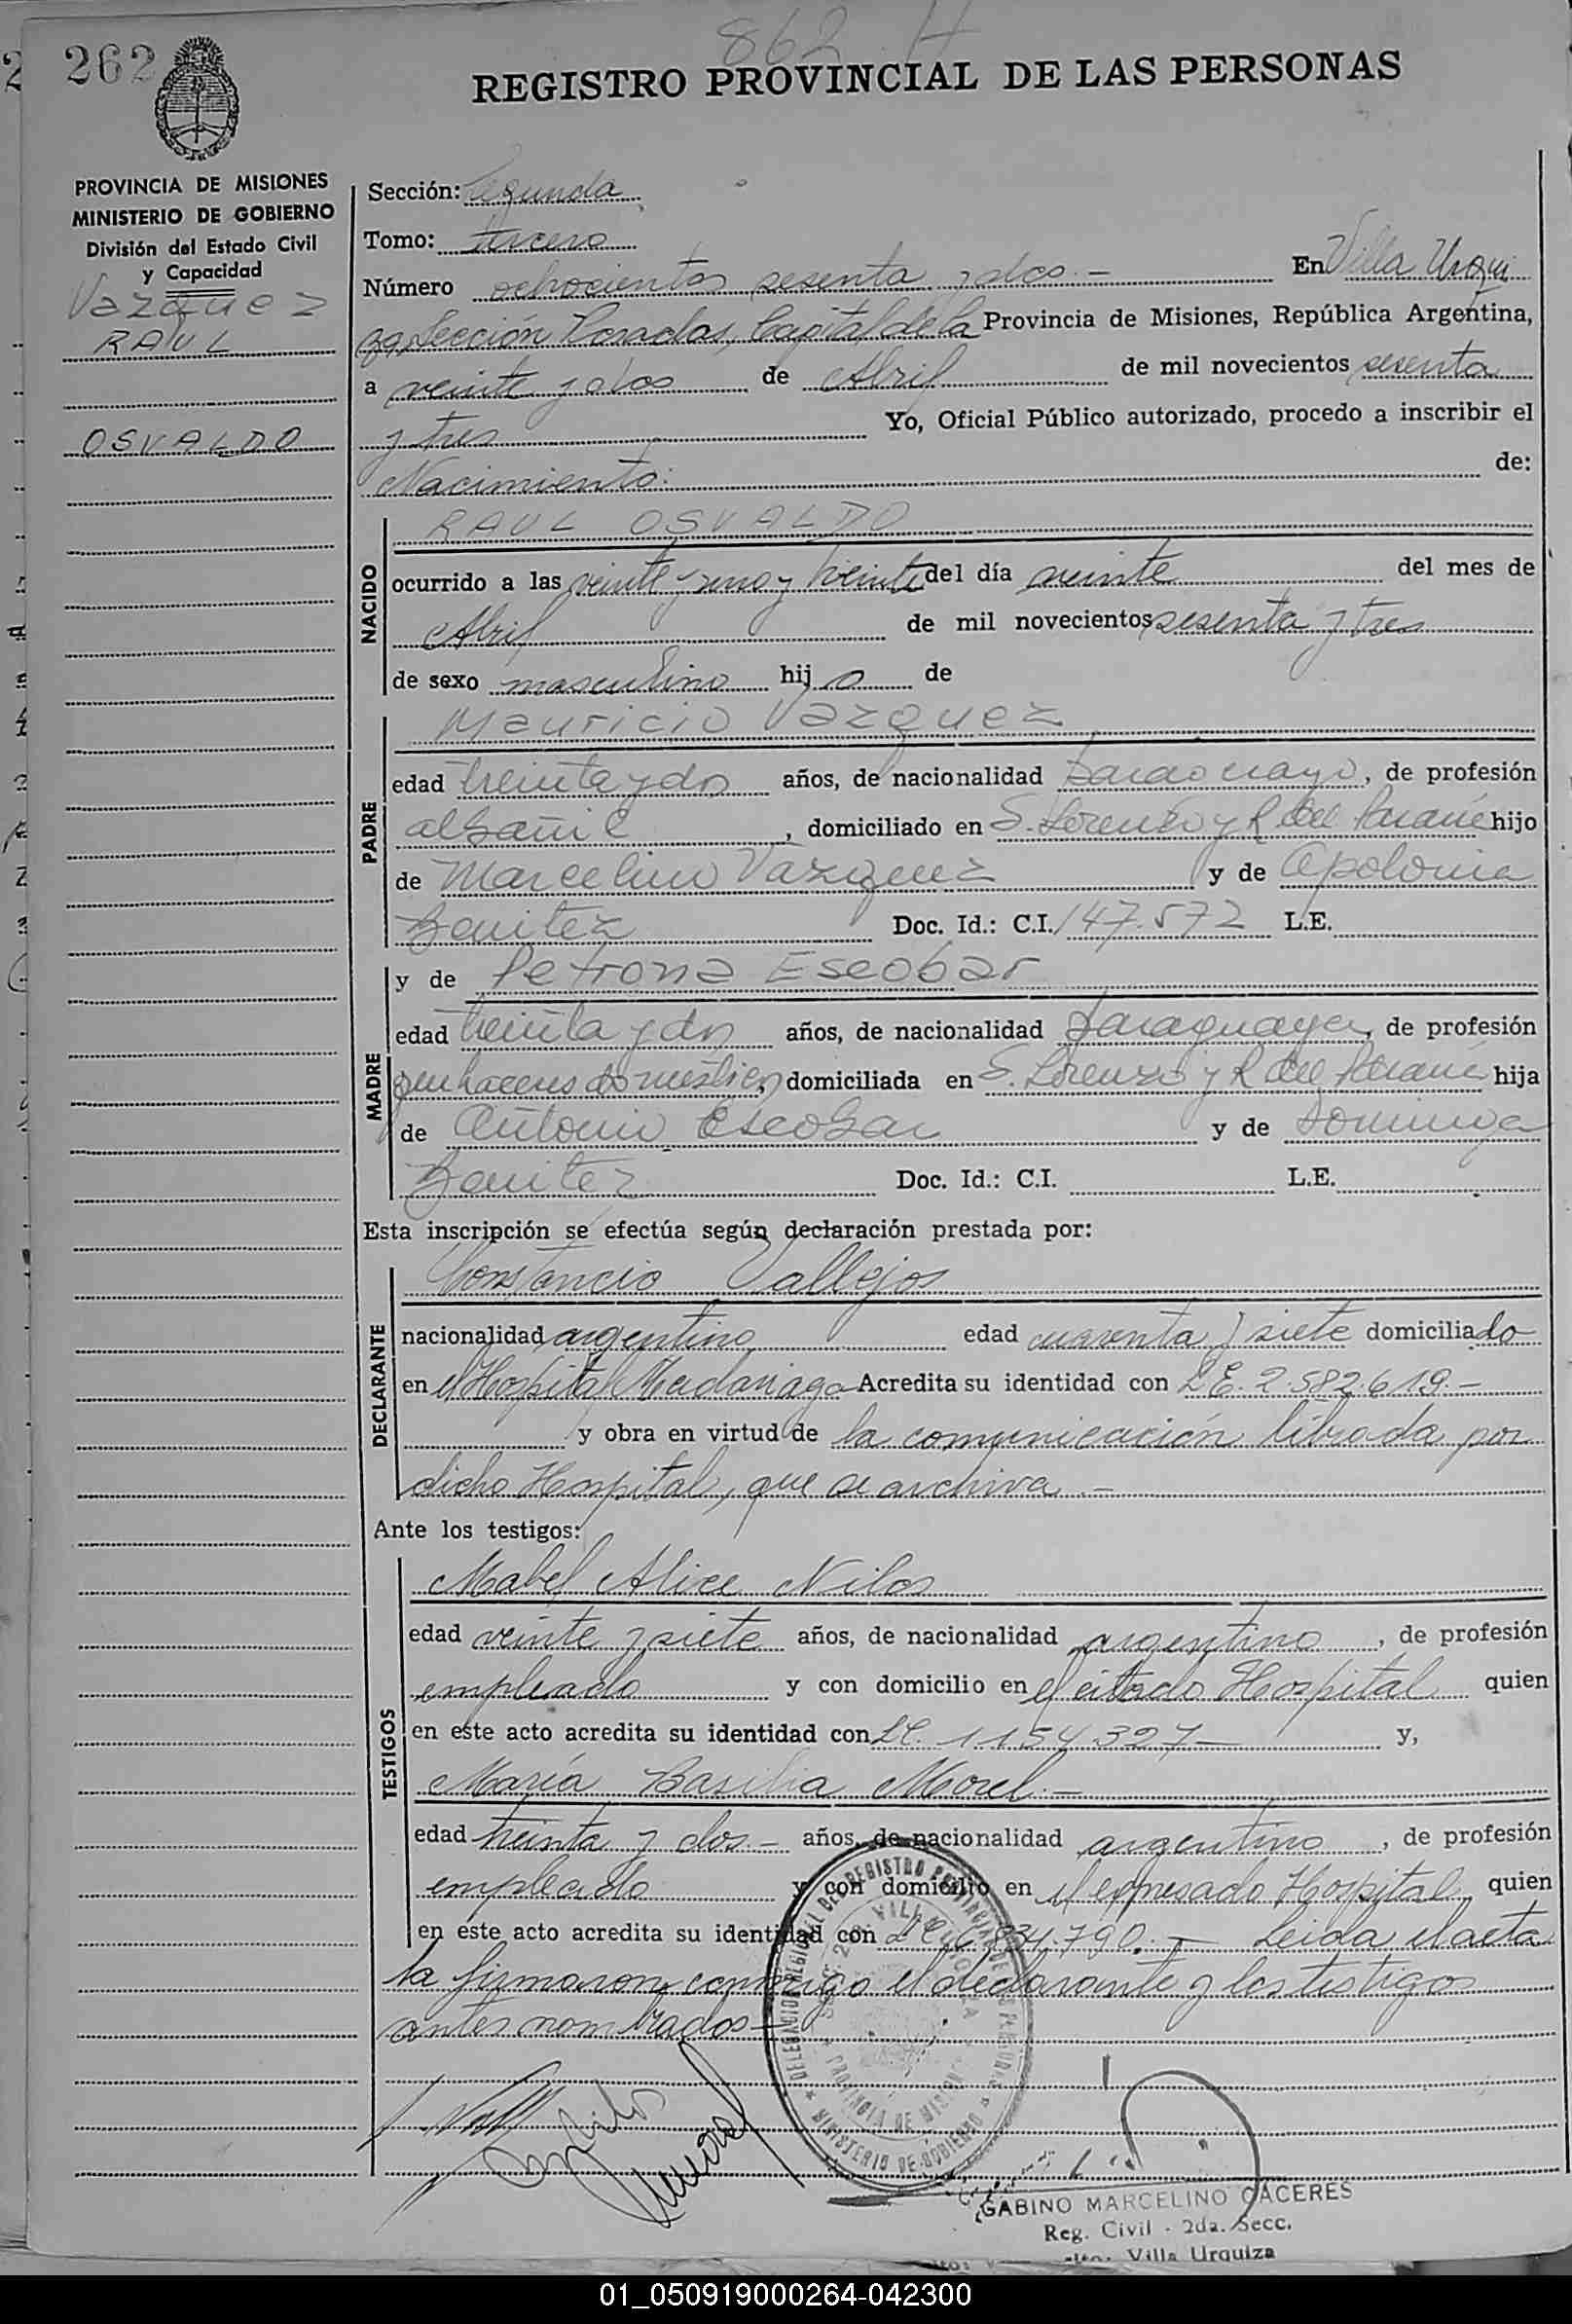 862 H
262
REGISTRO PROVINCIAL DE LAS PERSONAS
PROVINCIA DE MISIONES
MINISTERIO DE GOBIERNO
División del Estado Civil
y Capacidad
Vazquez
RAUL
OSVALDO
Sección: Segunda
Tomo: tercero
Número ochocientos sesenta y dos.- En Villa Urqui
za, Sección Posadas, Capital de la Provincia de Misiones, República Argentina,
a veinte y dos de Abril de mil novecientos sesenta
y tres Yo, Oficial Público autorizado, procedo a inscribir el
Nacimiento: de:
NACIDO
RAUL OSVALDO
ocurrido a las veinte y uno y treinta del día veinte del mes de
Abril de mil novecientos sesenta y tres
de sexo masculino hijo de
PADRE
Mauricio Vazquez
edad treinta y dos años, de nacionalidad paraguayo, de profesión
albañil, domiciliado en S. Lorenzo y R. del Paraná hijo
de Marcelino Vazquez y de Apolonia
Benitez Doc. Id.: C.I. 147.572 L.E.
MADRE
y de Petrona Escobar
edad treinta y dos años, de nacionalidad paraguaya, de profesión
quehaceres domésticos, domiciliada en S. Lorenzo y R. del Paraná hija
de Antonio Escobar y de Dominga
Benitez Doc. Id.: C.I. L.E.
Esta inscripción se efectúa según declaración prestada por:
DECLARANTE
Constancio Vallejos
nacionalidad argentino edad cuarenta y siete domiciliado
en el Hospital Madariaga Acredita su identidad con L.E. 2.582.619.-
y obra en virtud de la comunicación librada por
dicho Hospital, que se archiva.-
Ante los testigos:
TESTIGOS
Mabel Alice Nilos
edad veinte y siete años, de nacionalidad argentino, de profesión
empleado y con domicilio en el citado Hospital quien
en este acto acredita su identidad con LC. 1.154.327- y,
María Basilia Morel.-
edad treinta y dos.- años, de nacionalidad argentino, de profesión
empleado y con domicilio en el expresado Hospital, quien
en este acto acredita su identidad con 834.790.- Leida el acta
la firmaron conmigo el declarante y los testigos
antes nombrados-
DELEGACION REGIONAL DEL REGISTRO PROVINCIAL DE LAS PERSONAS
MINISTERIO DE GOBIERNO
PROVINCIA DE MISIONES
GABINO MARCELINO CACERES
Reg. Civil - 2da. Secc.
Villa Urquiza
01_050919000264-042300